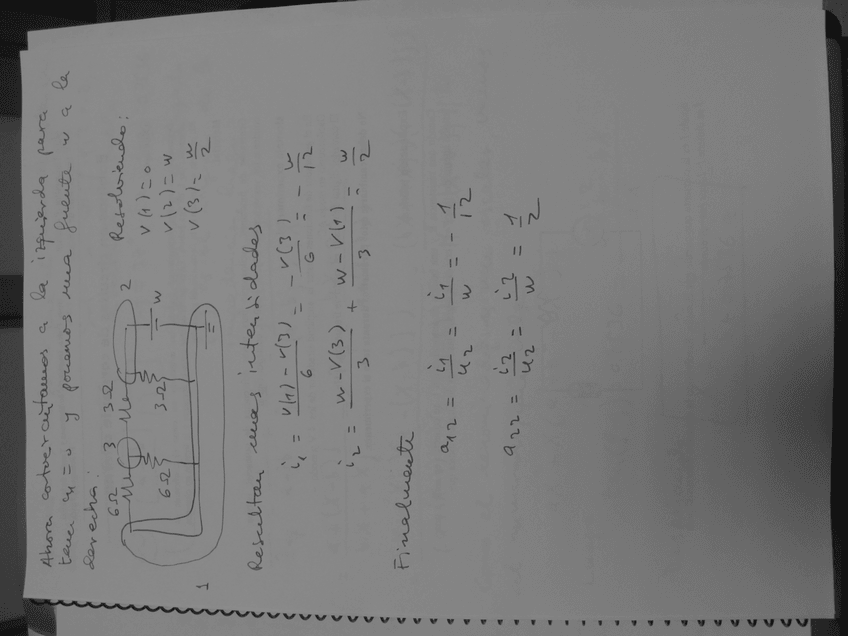 Ahora cortocircuitamos a la izquierda para
tener u1 = 0 y ponemos una fuente w a la
derecha:
6Ω 3 3Ω 2
6Ω 3Ω w
1
Resolviendo:
V(1) = 0
V(2) = w
V(3) = w/2
Resultan unas intensidades
i1 = (V(1) - V(3))/6 = -V(3)/6 = - w/12
i2 = (w - V(3))/3 + (w - V(1))/3 = w/2
Finalmente
a12 = i1/u2 = i1/w = - 1/12
a22 = i2/u2 = i2/w = 1/2